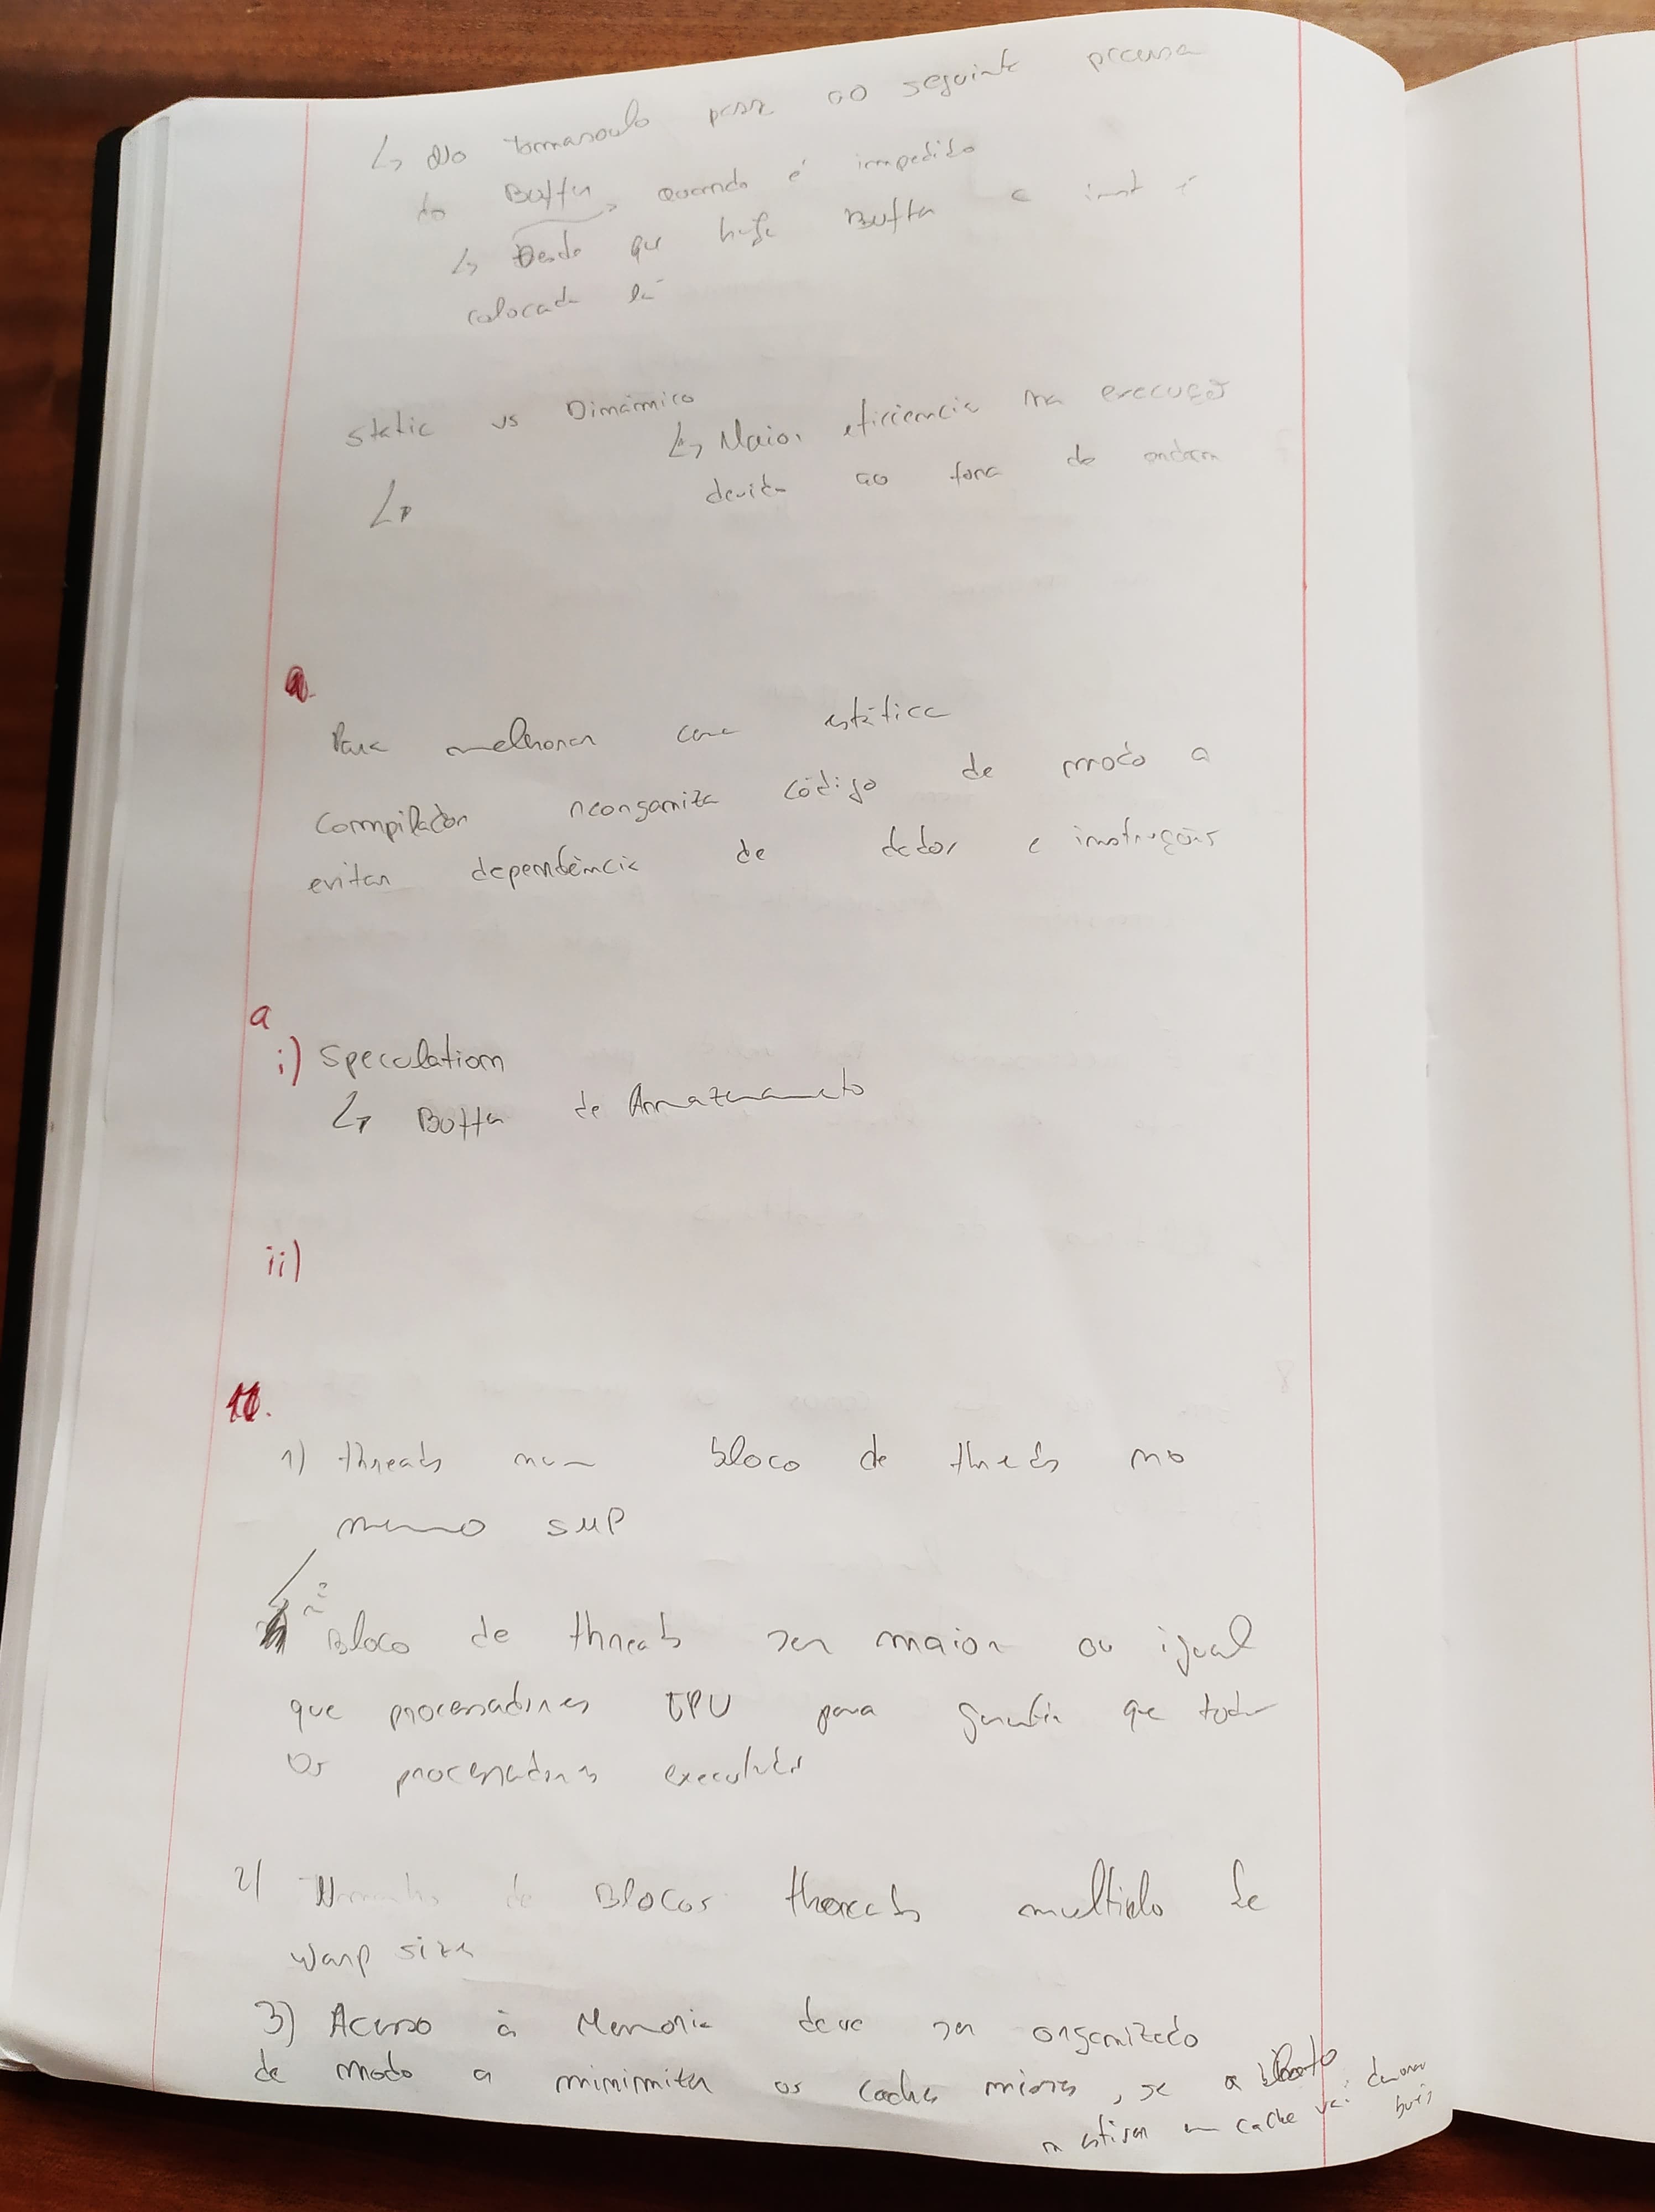 ↳ No tomasoulo passa ao seguinte precisa
do Buffer, quando é impedido
↳ Desde que haja Buffer a inst é
colocada lá
static vs Dinâmico
↳ Maior eficiencia na execução
devido ao fora de ordem
↳
Para melhorar com estática
compilador reorganiza código de modo a
evitar dependência de dados e instruções
a
i) Speculation
↳ Buffer de Armazenamento
ii)
10.
1) threads num bloco de threads no
mesmo SMP
Bloco de threads ser maior ou igual
que processadores GPU para garantir que todos
os processadores executados
2) de Blocos threads multiplo de
warp size
3) Acesso à Memoria deve ser organizado
de modo a minimizar os caches misses, se a
n estiver em cache vai demorar